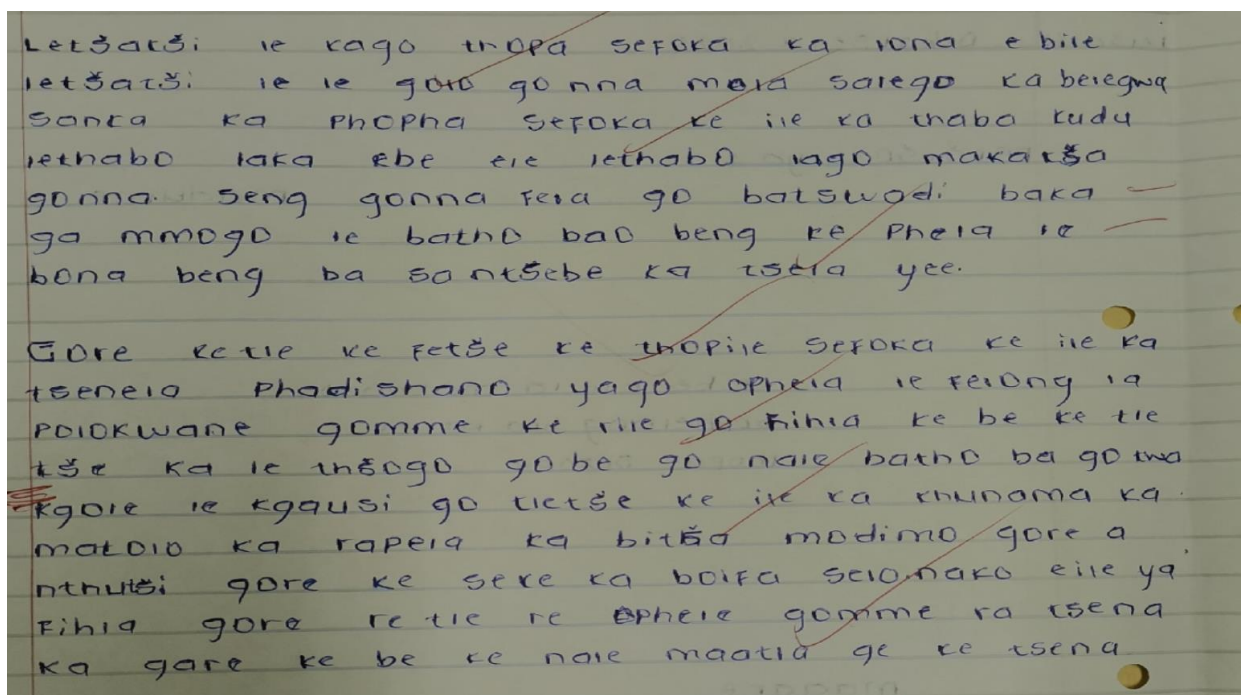 Letšatši le kago thopa sefoka ka lona e bile
letšatši le le golo go nna mola salego ka belegwa
Sanka ka Phopha sefoka ke ile ka thaba kudu
lethabo laka ebe ele lethabo lago makatša
gonna. Seng gonna fela go batswadi baka
ga mmogo le batho bao beng ke Phela le
bona beng ba santšebe ka tsela yee.
Gore ketle ke fetše ke thopile sefoka ke ile ka
tsenela Phadishano yago ophela le felong la
Polokwane gomme ke rile go fihla ke be ke tle
tše ka le thšogo gobe go nale batho ba go twa
kgole le kgausi go tletše ke ile ka khunama ka
matolo ka rapela ka bitša modimo gore a
nthutši gore ke seke ka boifa selo.nako eile ya
Fihla gore re tle re ophele gomme ra tsena
ka gare ke be ke nale maatla ge ke tsena